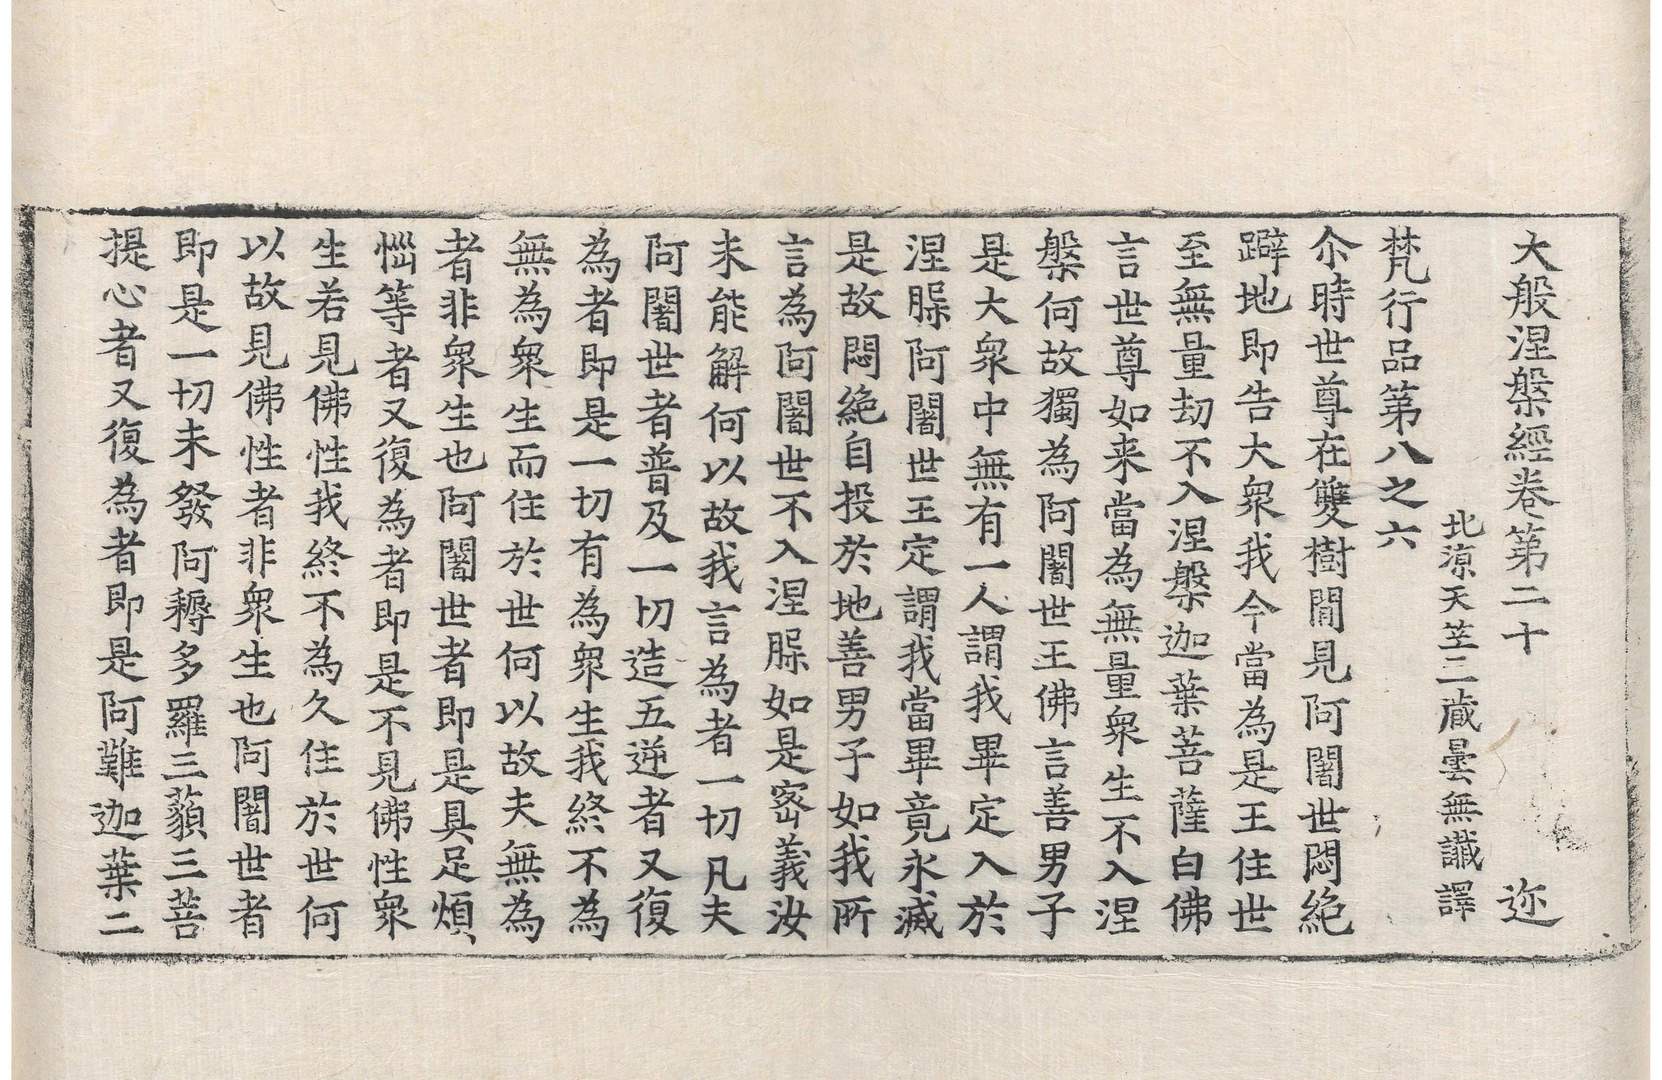 大般涅槃經卷第二十 迩
北涼天竺三藏曇無讖譯
梵行品第八之六
尒時世尊在雙樹間見阿闍世悶絶
躃地即告大衆我今當為是王住世
至無量劫不入涅槃迦葉菩薩白佛
言世尊如来當為無量衆生不入涅
槃何故獨為阿闍世王佛言善男子
是大衆中無有一人謂我畢定入於
涅槃阿闍世王定謂我當畢竟永滅
是故悶絶自投於地善男子如我所
言為阿闍世不入涅槃如是密義汝
未能解何以故我言為者一切凡夫
阿闍世者普及一切造五逆者又復
為者即是一切有為衆生我終不為
無為衆生而住於世何以故夫無為
者非衆生也阿闍世者即是具足煩
惱等者又復為者即是不見佛性衆
生若見佛性我終不為久住於世何
以故見佛性者非衆生也阿闍世者
即是一切未發阿耨多羅三藐三菩
提心者又復為者即是阿難迦葉二